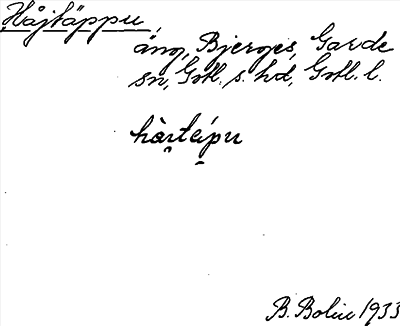 Häjtäppu,
äng, Bjerges, Garde
sn, Gotl. s. hd, Gotl. l.
B. Bolin 1933